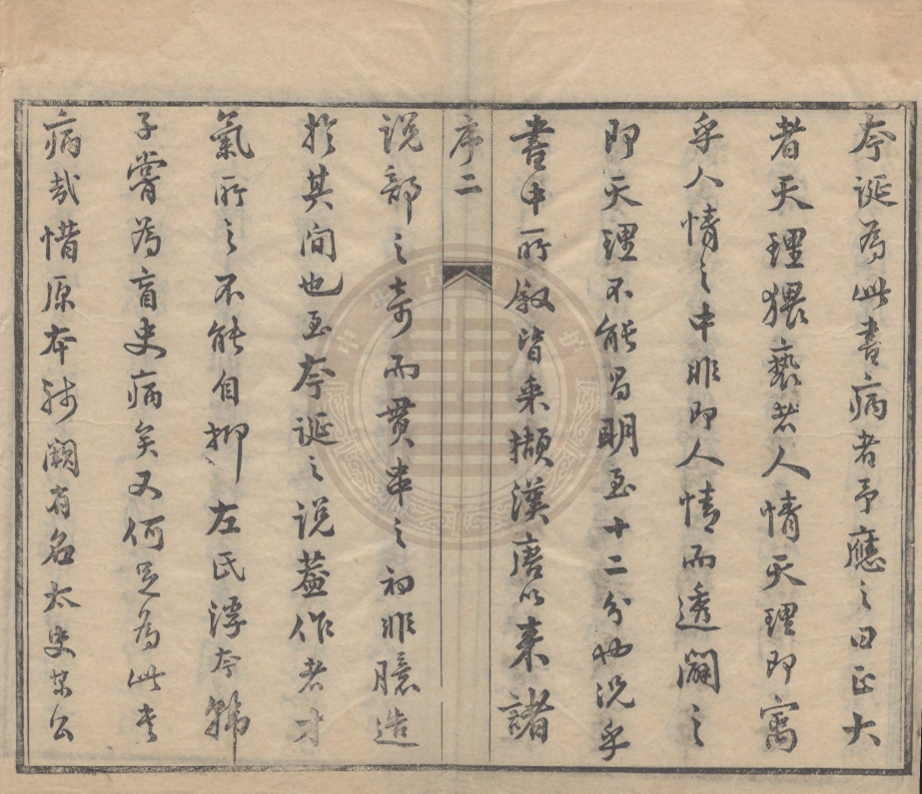 夸誕為此書病者予應之曰正大
者天理猥褻者人情天理即寓
乎人情之中非即人情而透闢之
即天理不能昌明至十二分也況乎
書中所敘皆采擷漢唐以來諸
序 二
說部之奇而貫串之初非臆造
於其間也至夸誕之說蓋作者才
氣所之不能自抑左氏浮夸韓
子嘗為盲史病矣又何足為此書
病哉惜原本殘闕有名太史某公